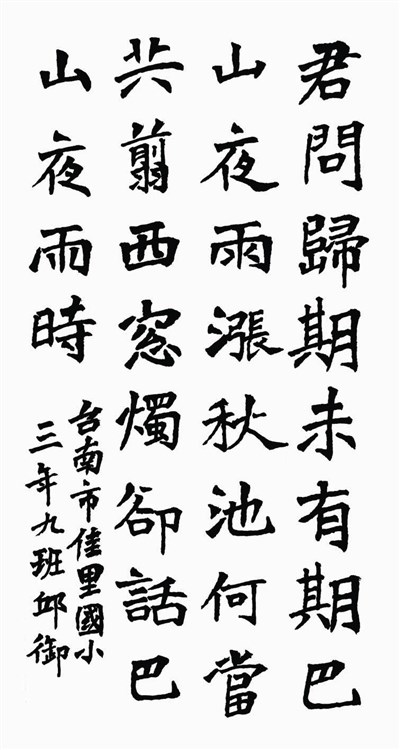 君問歸期未有期巴
山夜雨漲秋池何當
共翦西窓燭卻話巴
山夜雨時
台南市佳里國小
三年九班邱御